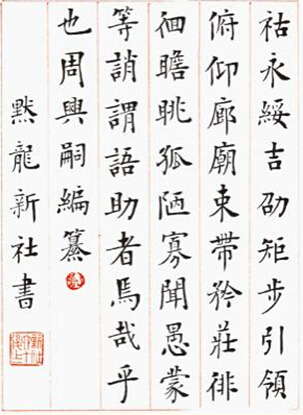 祜永綏吉劭矩步引領
俯仰廊廟束帶矜莊徘
徊瞻眺孤陋寡聞愚蒙
等誚謂語助者焉哉乎
也周興嗣編纂
默龍新社書